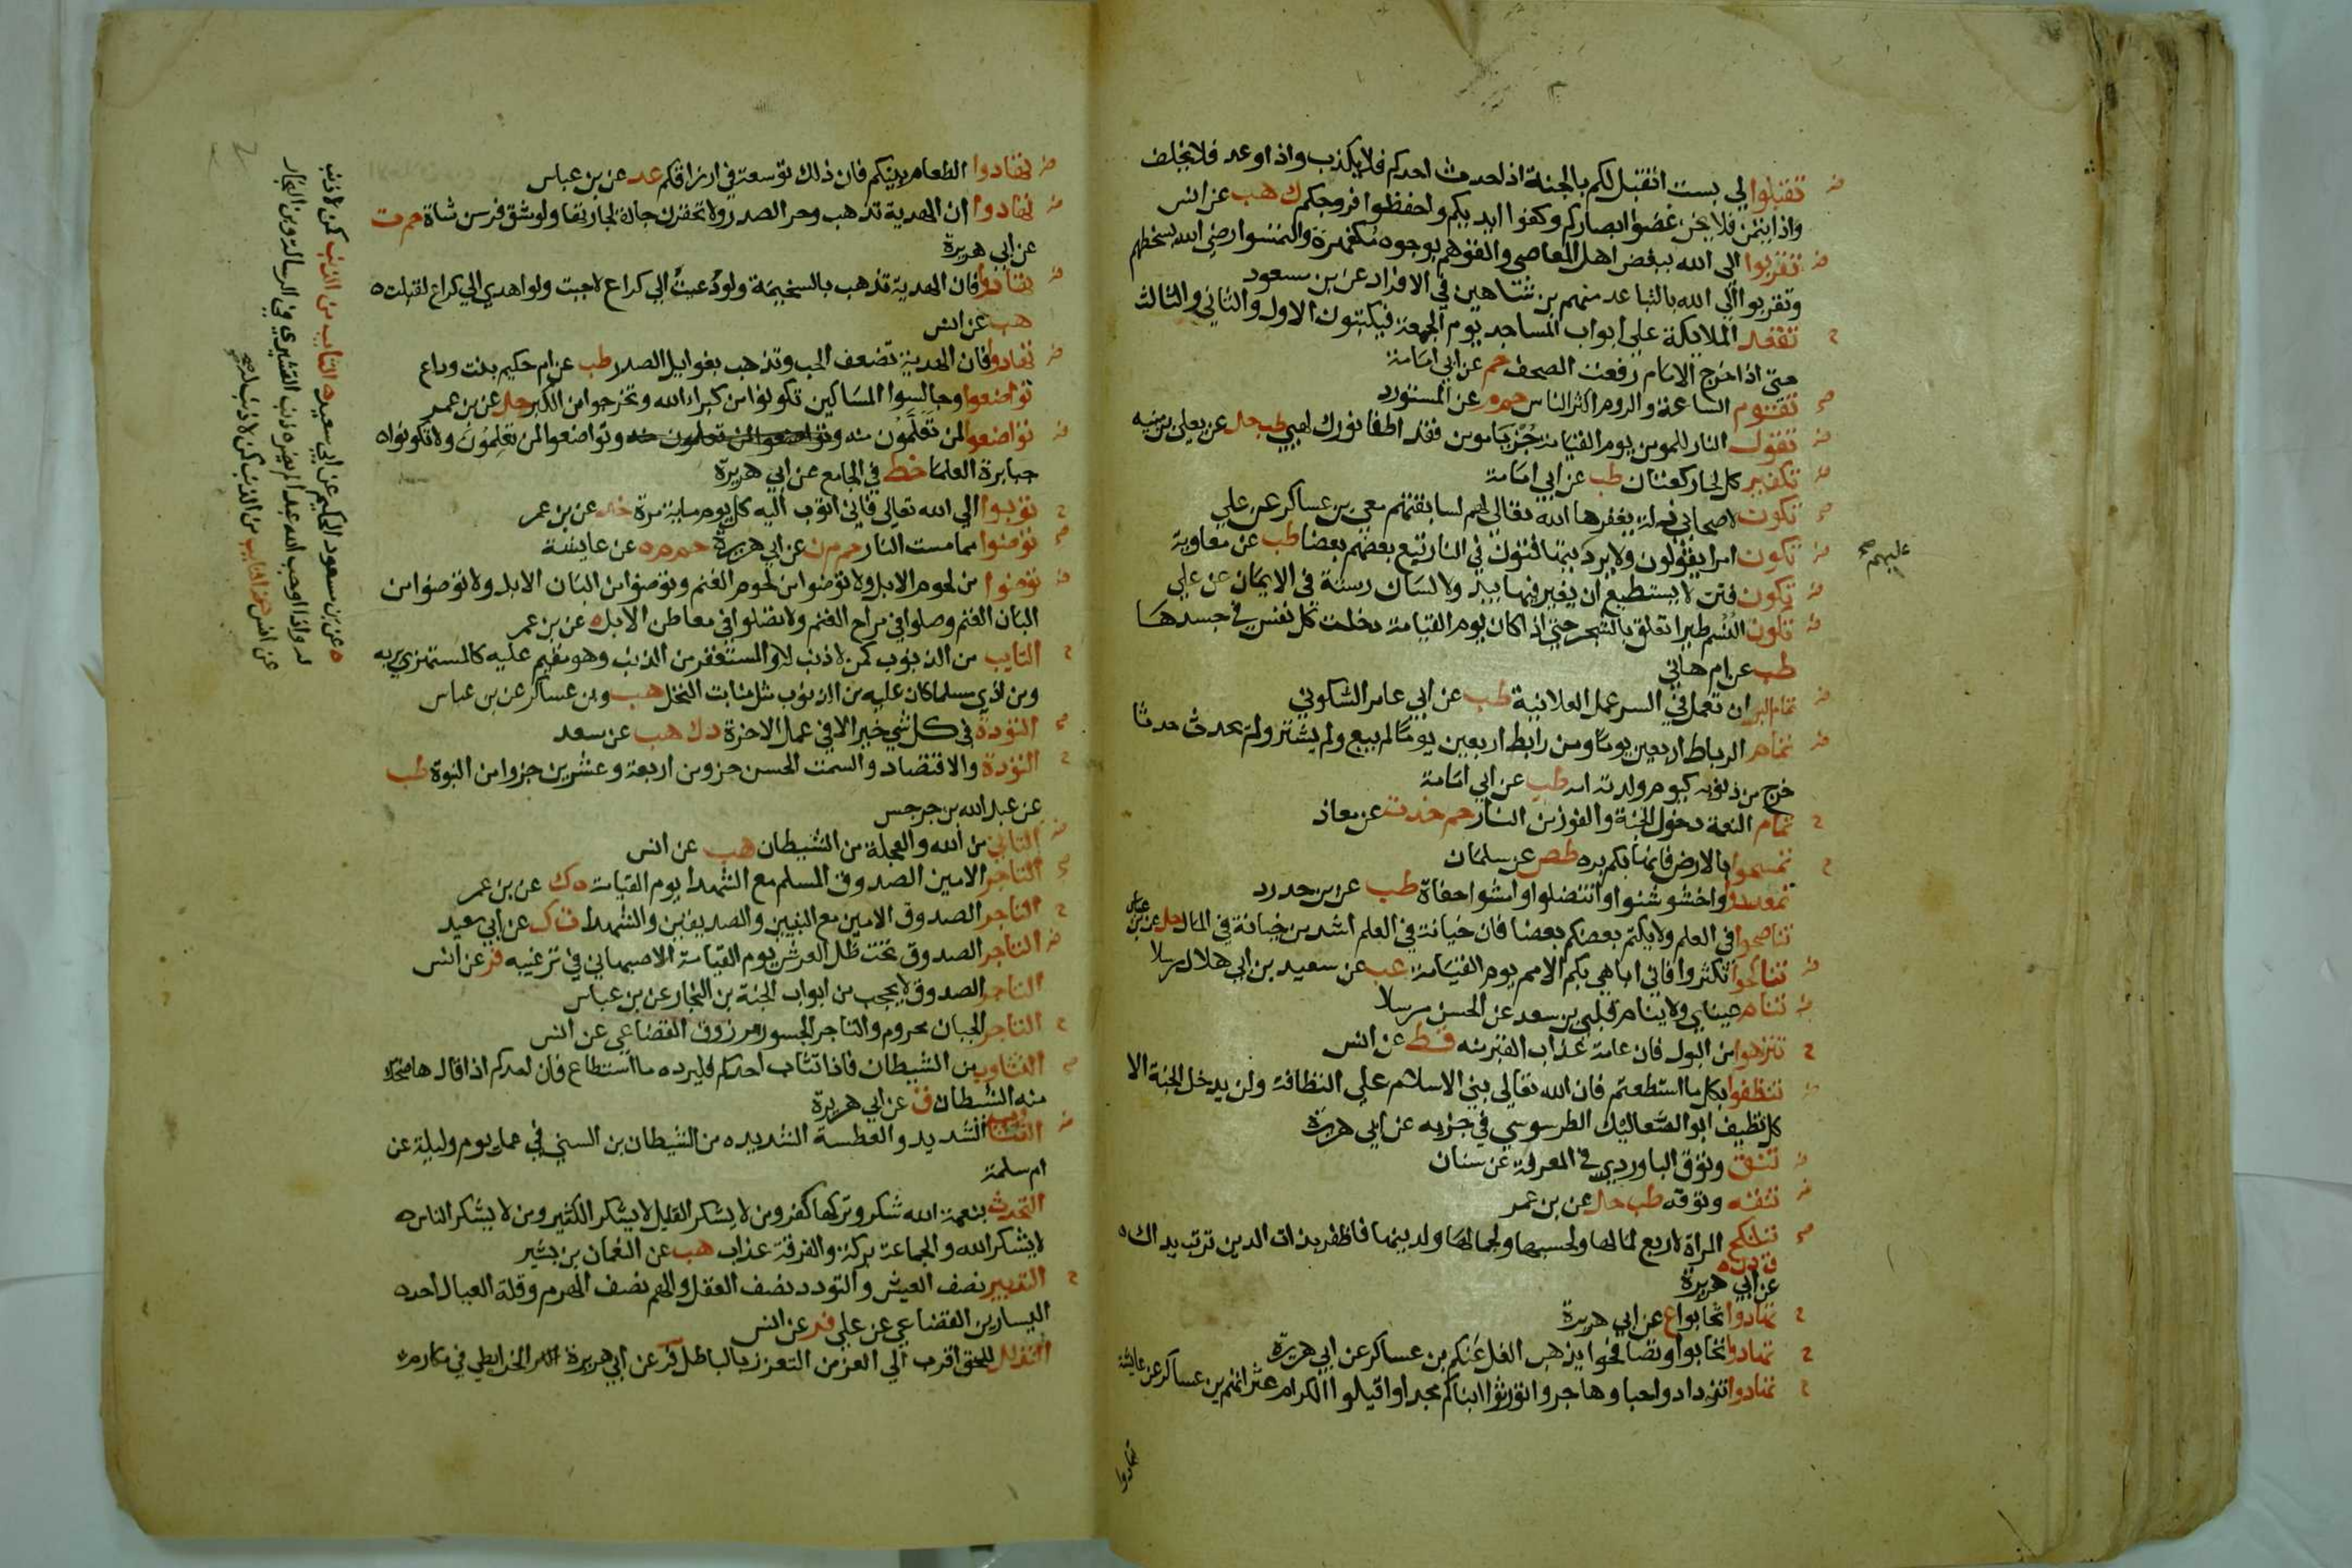 تقبلوا لي بست اتقبل لكم بالجنة اذا حدث احدكم فلا يكذب واذا وعد فلا يخلف
واذا ايتمن فلا يخن غضوا ابصاركم وكفوا ايديكم واحفظوا فروجكم ك هب عن انس
تقربوا الي الله ببغض اهل المعاصي والقوهم بوجوه مكفهرة والتمسوا رضي الله بسخطهم
وتقربوا الي الله بالتباعد منهم بن شاهين في الافراد عن بن مسعود
تقعد الملايكة علي ابواب المساجد يوم الجمعة فيكتبون الاول والثاني والثالث
حتي اذا خرج الامام رفعت الصحف حم عن ابي امامة
تقوم الساعة والروم اكثر الناس حم م عن المستورد
تقول النار للمومن يوم القيامة جز يا مومن فقد اطفا نورك لهبي طب حل عن يعلي بن منيه
تكفير كل لحا ركعتان طب عن ابي امامة
تكون لاصحابي زلة يغفرها الله تعالي لهم لسابقتهم معي بن عساكر عن علي
تكون امرا يقولون ولا يرد يتهافتون في النار يتبع بعضهم بعضا طب عن معاوية
عليهم صح
تكون فتن لا يستطيع ان يغير فيها بيد ولا لسان رستة في الايمان عن علي
تكون النسم طيرا تعلق بالشجر حتي اذا كان يوم القيامة دخلت كل نفس في جسدها
طب عن ام هاني
تمام البر ان تعمل في السر عمل العلانية طب عن ابي عامر السكوني
تمام الرباط اربعين يوما ومن رابط اربعين يوما لم يبع ولم يشتر ولم يحدث حدثا
خرج من ذنوبه كيوم ولدته امه طب عن ابي امامة
تمام النعمة دخول الجنة والفوز من النار حم خد ت عن معاذ
تمسحوا بالارض فانها بكم بره طص عن سلمان
تمعددوا واخشوشنوا وانتضلوا وامشوا حفاة طب عن بن حدرد
تناصحوا في العلم ولا يكتم بعضكم بعضا فان خيانة في العلم اشد من خيانة في المال حل عن بن عباس
تناكحوا تكثروا فاني اباهي بكم الامم يوم القيامة عب عن سعيد بن ابي هلال مرسلا
تنام عيناي ولا ينام قلبي بن سعد عن الحسن مرسلا
تنزهوا من البول فان عامة عذاب القبر منه قط عن انس
تنظفوا بكل ما استطعتم فان الله تعالي بني الاسلام علي النظافة ولن يدخل الجنة الا
كل نظيف ابو الصعاليك الطرسوسي في جزيه عن ابي هريرة
تنق وتوق الباوردي في المعرفة عن سنان
تنقه وتوقه طب حل عن بن عمر
تنكح المراة لاربع لمالها ولحسبها ولجمالها ولدينها فاظفر بذات الدين تربت يداك
ق د ن ه
عن ابي هريرة
تهادوا تحابوا ع عن ابي هريرة
تهادوا تحابوا وتصافحوا يذهب الغل عنكم بن عساكر عن ابي هريرة
تهادوا تزدادوا حبا وهاجروا تورثوا ابناكم مجدا واقيلوا الكرام عثراتهم بن عساكر عن عايشة
تهادوا
تهادوا الطعام بينكم فان ذلك توسعة في ارزاقكم عد عن بن عباس
تهادوا ان الهدية تذهب وحر الصدر ولا تحقرن جارة لجارتها ولو شق فرسن شاة حم ت
عن ابي هريرة
تهادوا فان الهدية تذهب بالسخيمة ولو دعيت الي كراع لاجبت ولو اهدي الي كراع لقبلت
هب عن انس
تهادوا فان الهدية تضعف الحب وتذهب بغوايل الصدر طب عن ام حكيم بنت وداع
تواضعوا وجالسوا المساكين تكونوا من كبراء الله وتخرجوا من الكبر حل عن بن عمر
تواضعوا لمن تعلمون منه وتواضعوا لمن تعلمون منه وتواضعوا لمن تعلمون ولا تكونوا
جبابرة العلما خط في الجامع عن ابي هريرة
توبوا الي الله تعالي فاني اتوب اليه كل يوم ماية مرة خد عن بن عمر
توضوا مما مست النار حم م ن عن ابي هريرة حم م ه عن عايشة
توضوا من لحوم الابل ولا توضوا من لحوم الغنم وتوضوا من البان الابل ولا توضوا من
البان الغنم وصلوا في مراح الغنم ولا تصلوا في معاطن الابل ه عن بن عمر
التايب من الذنوب كمن لا ذنب له والمستغفر من الذنب وهو مقيم عليه كالمستهزي بربه
ومن اذي مسلما كان عليه من الذنوب مثل منابت النخل هب وبن عساكر عن بن عباس
التودة في كل شي خير الا في عمل الاخرة د ك هب عن سعد
التودة والاقتصاد والسمت الحسن جزو من اربعة وعشرين جزوا من النبوة طب
عن عبد الله بن جرجس
التاني من الله والعجلة من الشيطان هب عن انس
التاجر الامين الصدوق المسلم مع الشهدا يوم القيامة ه ك عن بن عمر
التاجر الصدوق الامين مع النبيين والصديقين والشهدا ت ك عن ابي سعيد
التاجر الصدوق تحت ظل العرش يوم القيامة الاصبهاني في ترغيبه فر عن انس
التاجر الصدوق لا يحجب من ابواب الجنة بن النجار عن بن عباس
التاجر الجبان محروم والتاجر الجسور مرزوق القضاعي عن انس
التثاوب من الشيطان فاذا تثاب احدكم فليرده ما استطاع فان احدكم اذا قال ها ضحك
منه الشيطان ق عن ابي هريرة
التثاوب الشديد والعطسة الشديده من الشيطان بن السني في عمل يوم وليلة عن
ام سلمة
التحدث بنعمة الله شكر وتركها كفر ومن لا يشكر القليل لا يشكر الكثير ومن لا يشكر الناس
لا يشكر الله والجماعة بركة والفرقة عذاب هب عن النعمان بن بشير
التدبير نصف العيش والتودد نصف العقل والهم نصف الهرم وقلة العيال احد
اليسارين القضاعي عن علي فر عن انس
التذلل للحق اقرب الي العز من التعزز بالباطل فر عن ابي هريرة الخرايطي في مكارم
التايب من الذنب كمن لا ذنب
له ه عن بن مسعود الحكيم عن ابي سعيد
له واذا احب الله عبدا لم يضره ذنب القشيري في الرسالة وبن النجار
عن انس التايب من الذنب كمن لا ذنب له صح